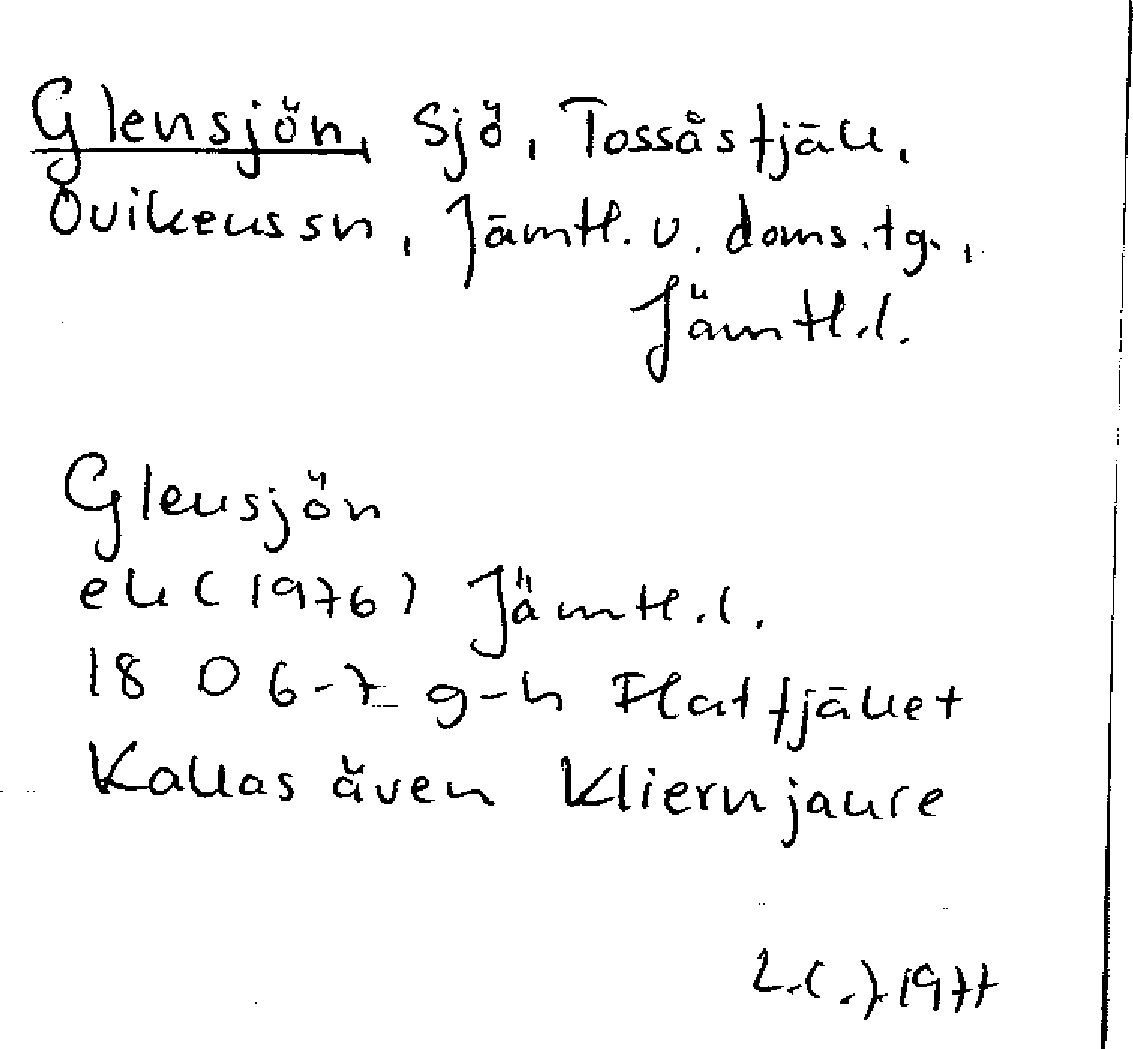 Glensjön, sjö, Tossåsfjäll,
Ovikens sn, Jämtl. v. doms. tg.,
Jämtl.l.
Glensjön
ek (1976) Jämtl.l.
18 D 6-7 g-h Flatfjället
Kallas även Kliernjaure
1977